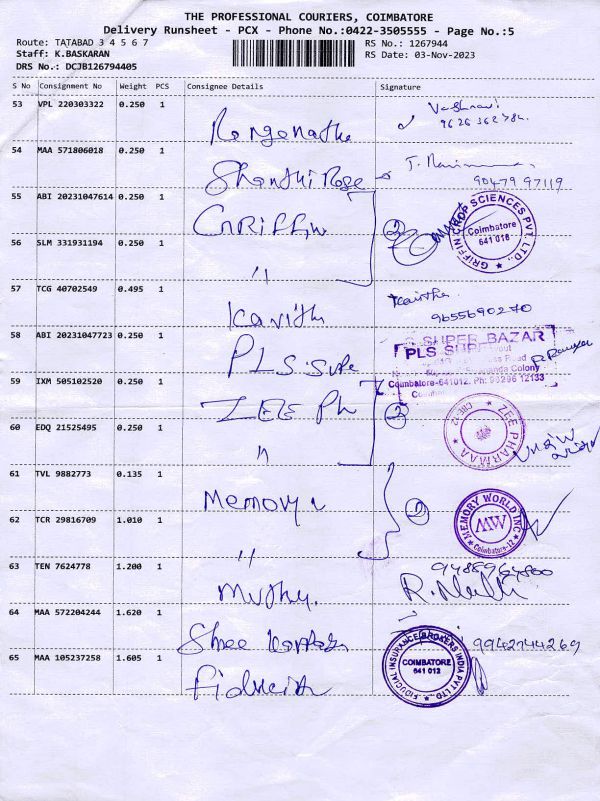 THE PROFESSIONAL COURIERS, COIMBATORE
Delivery Runsheet - PCX - Phone No.:0422-3505555 - Page No.:5
Route: TATABAD 3 4 5 6 7
RS No.: 1267944
Staff: K.BASKARAN
RS Date: 03-Nov-2023
DRS No.: DCJB126794405
S No Consignment No Weight PCS Consignee Details Signature
53 VPL 220303322 0.250 1
9626362784
54 MAA 571806018 0.250 1
Shanthi Rose
90479 97119
55 ABI 20231047614 0.250 1
Griffin
2
GRIFFIN CROP SCIENCES PVT. LTD.,
Coimbatore
641 016
56 SLM 331931194 0.250 1
"
57 TCG 40702549 0.495 1
Kavith
Kavitha
9655690270
58 ABI 20231047723 0.250 1
PLS. Supe
SUPER BAZAR
PLS
Road
Colony
Coimbatore-641012. Ph: 98296 12133
59 IXM 505102520 0.250 1
ZEE Ph
2
ZEE PHARMAA
CBE-12
60 EDQ 21525495 0.250 1
"
61 TVL 9882773 0.135 1
Memory
2
MEMORY WORLD INC
MW
Coimbatore-12
62 TCR 29816709 1.010 1
"
63 TEN 7624778 1.200 1
Muthu.
64 MAA 572204244 1.620 1
Shree
9942744269
65 MAA 105237258 1.605 1
FIDUCIAL INSURANCE BROKERS INDIA PVT LTD.
COIMBATORE
641 012